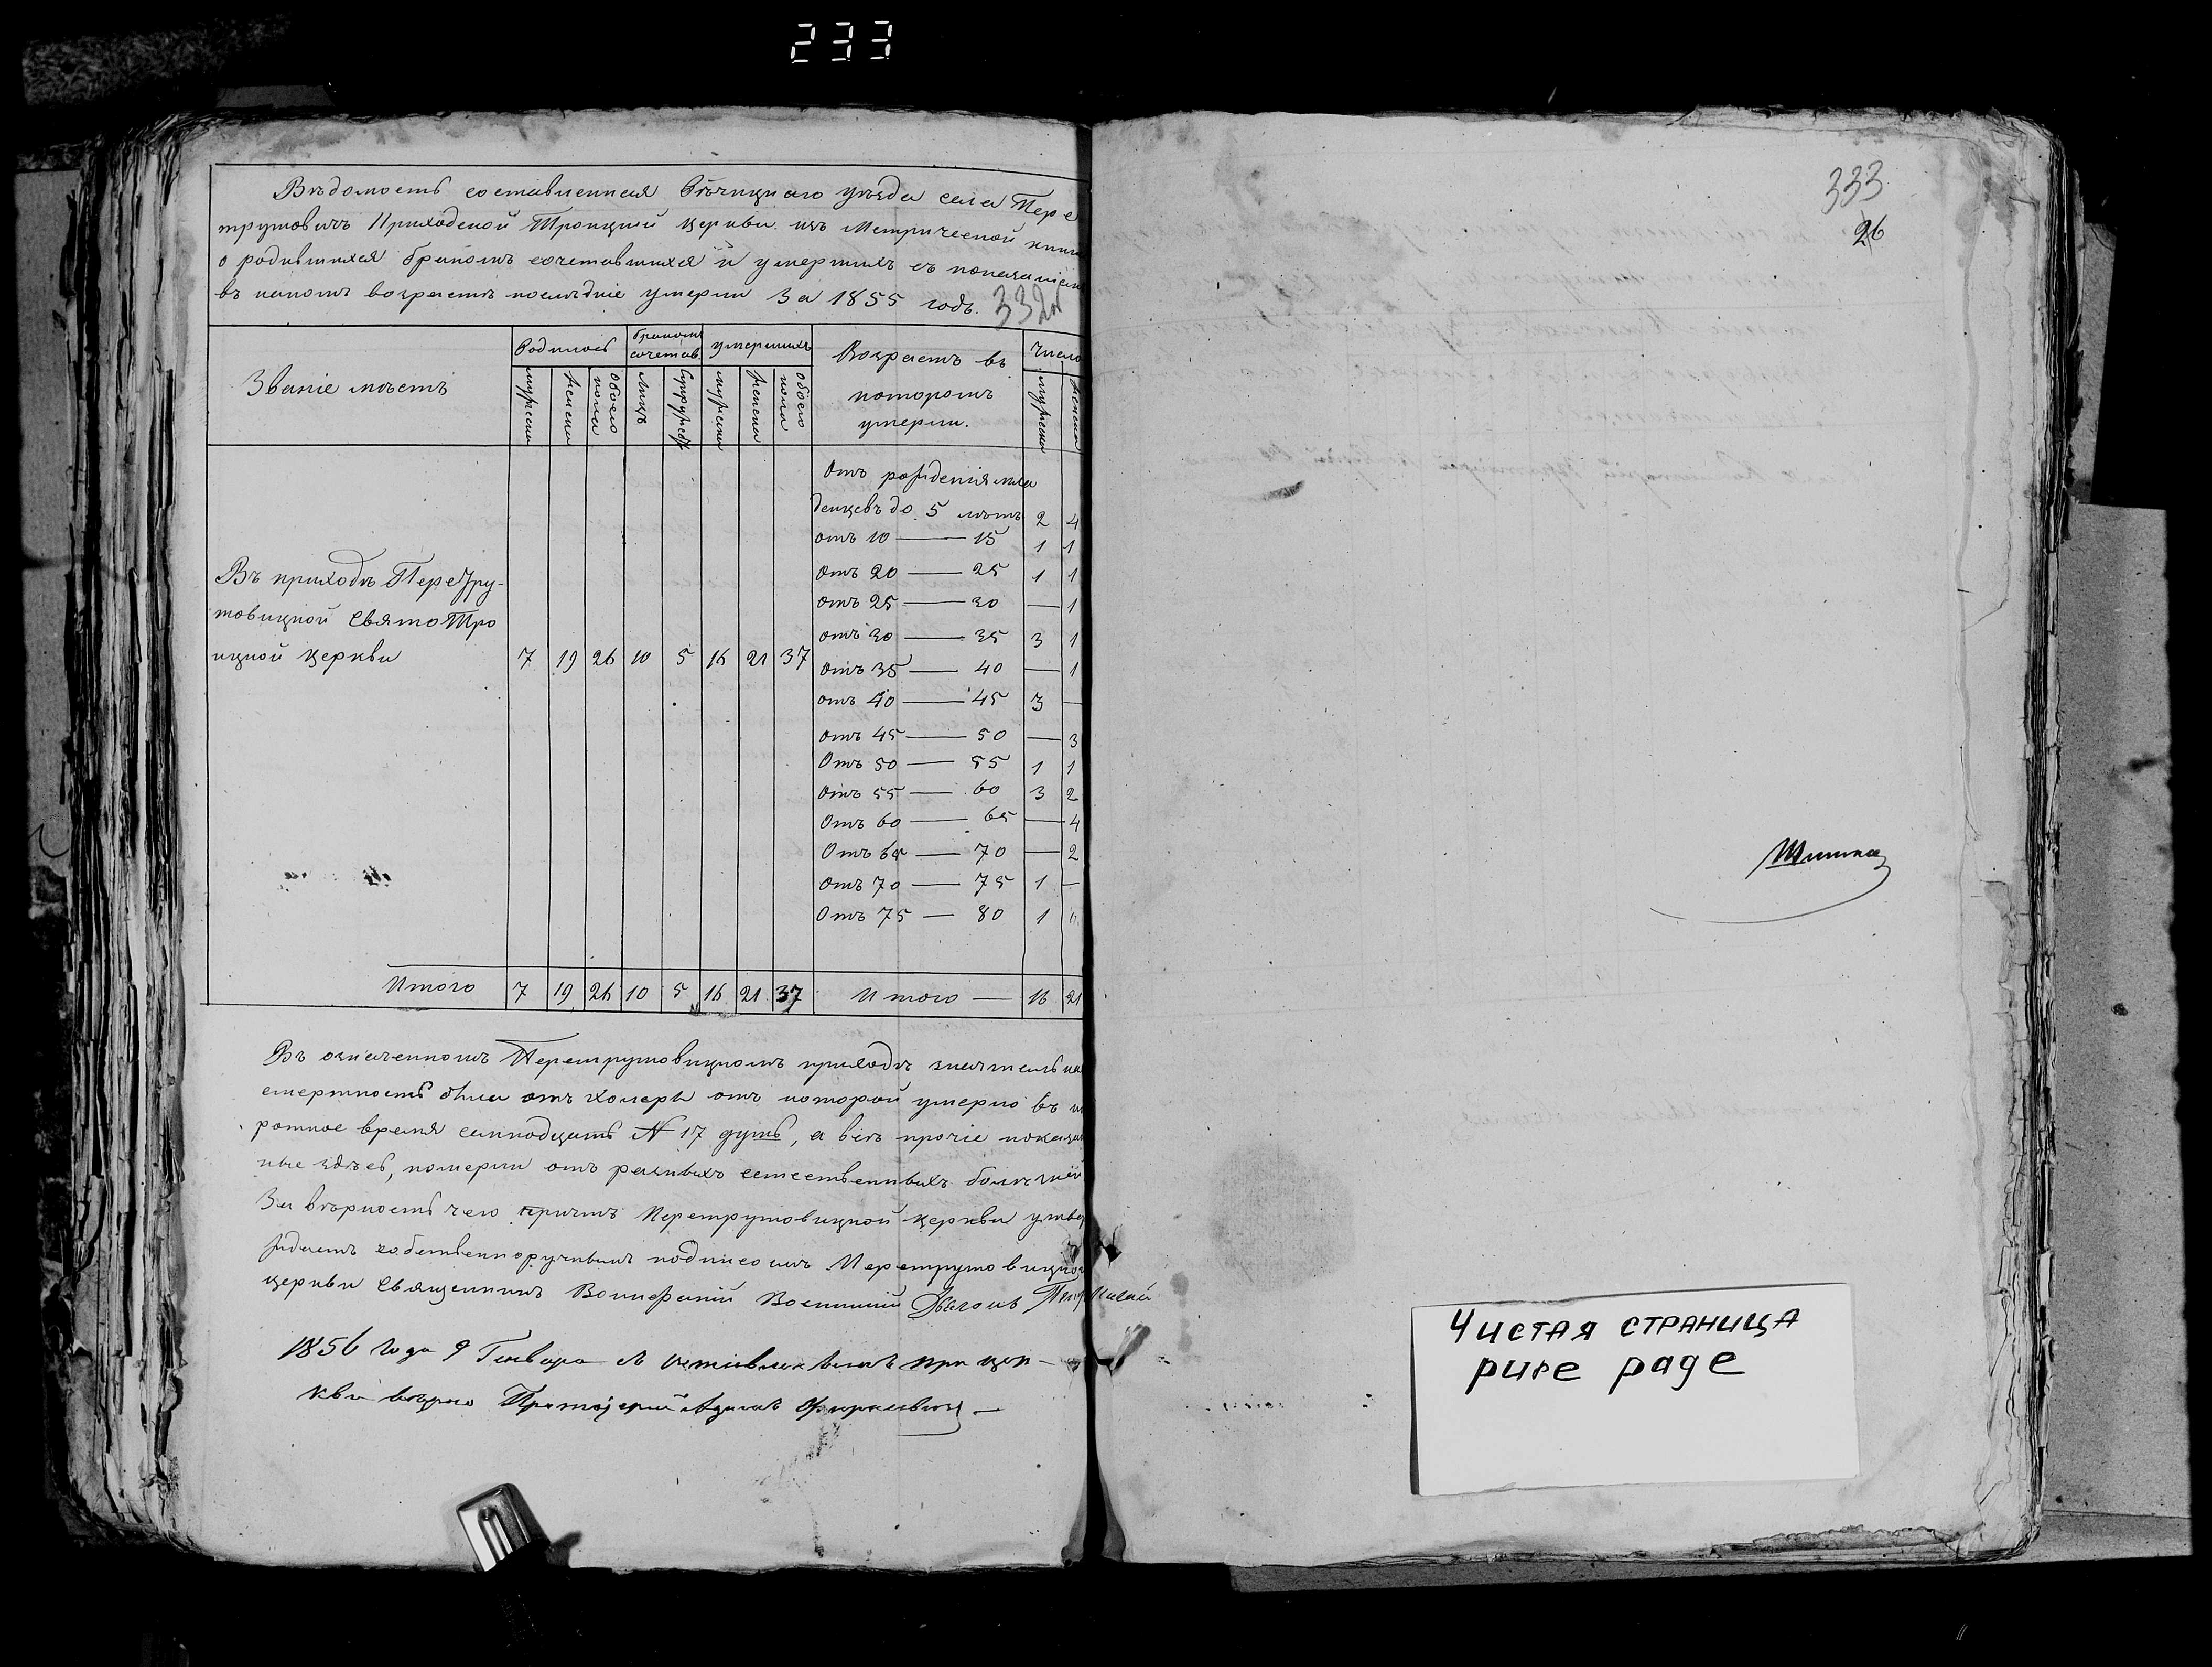 233
Вѣдомость составленная Рѣчицкаго уѣзда села Пере
трутовичъ Приходской Троицкой церкви изъ Метрической книги
о родившихся бракомъ сочетавшихся и умершихъ съ показаніемъ
въ какомъ возрастѣ послѣдніе умерли За 1855 годъ.
332
Званіе мѣстъ
Родилось
бракомъ сочетав.
умершихъ
Возрастъ въ которомъ умерли.
Число
мужеска
женска
обоего пола
Лицъ
Супружес
мужеска
женска
обоего пола
мужеска
женска
Отъ рожденія мла
денцевъ до 5 лѣтъ 2 4
отъ 10 — 15 1 1
отъ 20 — 25 1 1
отъ 25 — 30 — 1
отъ 30 — 35 3 1
отъ 35 — 40 — 1
отъ 40 — 45 3 —
отъ 45 — 50 — 3
Отъ 50 — 55 1 1
Отъ 55 — 60 3 2
Отъ 60 — 65 — 4
Отъ 65 — 70 — 2
Отъ 70 — 75 1 —
Отъ 75 — 80 1
Въ приходѣ Перетру-
товицкой Свято Тро
ицкой церкви 7 19 26 10 5 16 21 37
Итого 7 19 26 10 5 16 21 37 Итого — 16 21
Въ означенномъ Перетрутовицкомъ приходѣ значительна
смертность была отъ холеры отъ которой умерло въ к
роткое время семнодцать № 17 душъ, а всѣ прочіе показан
ные здѣсь, померли отъ разныхъ естественныхъ болѣзней
За вѣрность чего причтъ Перетрутовицкой церкви утвер
ждаетъ собственноручнымъ подписомъ Перетрутовицкой
церкви Священникъ
1856 Года 9 Генваря при цер-
кви Протоіерей
333
26
Чистая страница
pure page